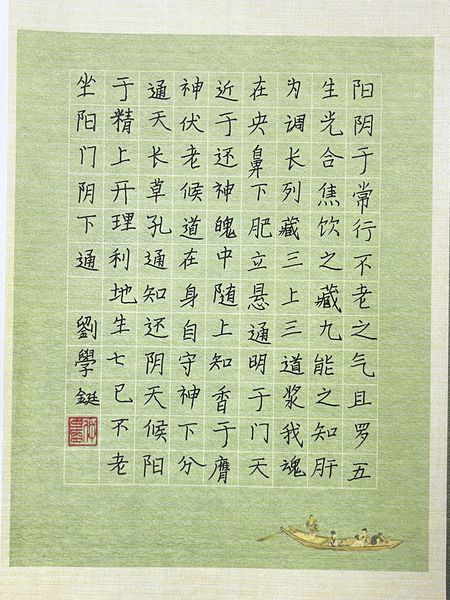 阳阴于常行不老之气且罗五
生光合焦饮之藏九能之知肝
为调长列藏三上三道浆我魂
在央鼻下肥立悬通明于门天
近于还神魄中随上知香于膺
神伏老候道在身自守神下分
通天长草孔通知还阴天候阳
于精上开理利地生七已不老
坐阳门阴下通 劉學鋌